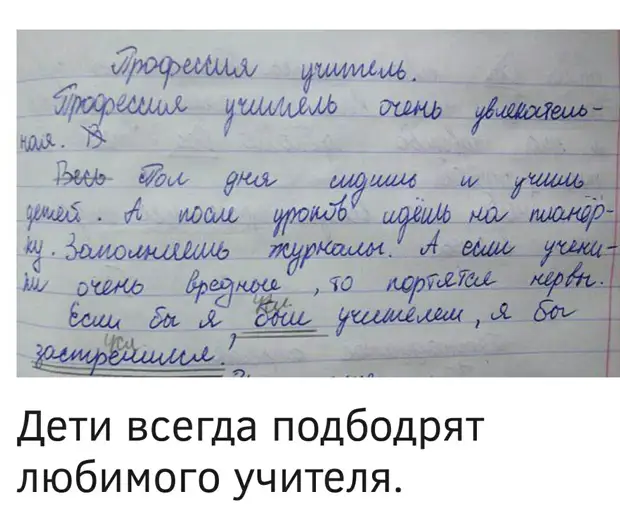 Профессия учитель.
Профессия учитель очень увлекатель-
ная. В
Весь Пол дня сидишь и учишь
детей. А после уроков идёшь на планёр-
ку. Заполняешь журналы. А если учени-
ки очень вредные, то портятся нервы.
Если бы я был учителем, я бы
застрелился.
Дети всегда подбодрят
любимого учителя.